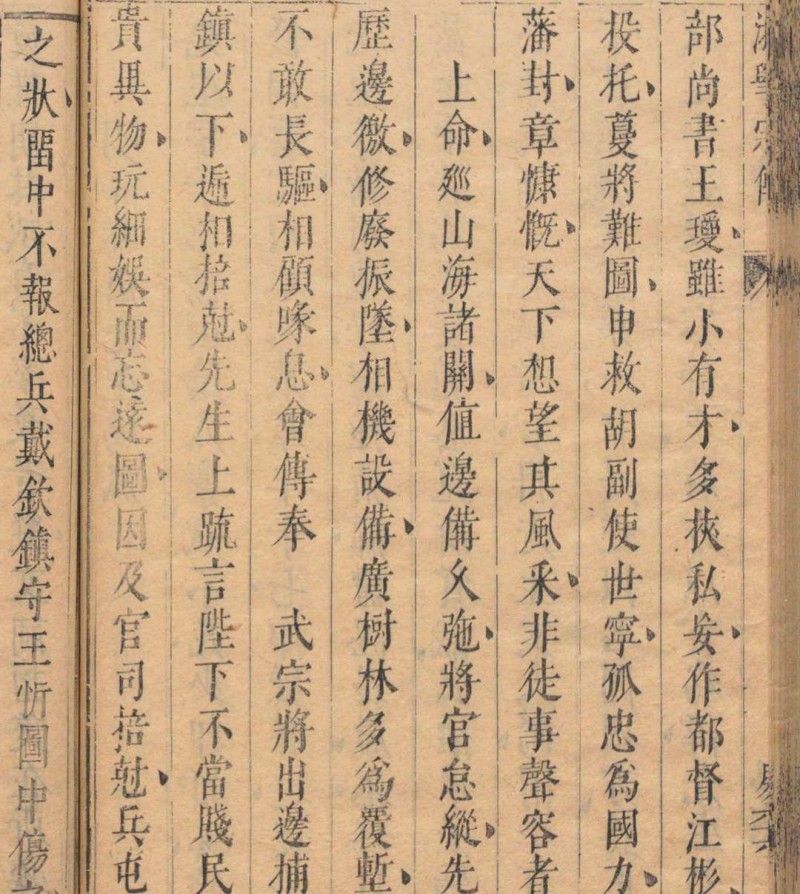 部尚書王瓊雖小有才多挾私妄作都督江彬
投托蔓將難圖申救胡副使世寧孤忠為國力
藩封章慷慨天下想望其風采非徒事聲容者
上命廵山海諸關值邊備久弛將官怠縱先
歷邊徼修廢振墜相機設備廣樹林多為覆塹
不敢長驅相顧喙息會傳奉 武宗將出邊捕
鎮以下遞相掊尅先生上疏言陛下不當賤民
貴異物玩細娛而忘遠圖因及官司掊尅兵屯
之狀留中不報總兵戴欽鎮守王忻圖中傷